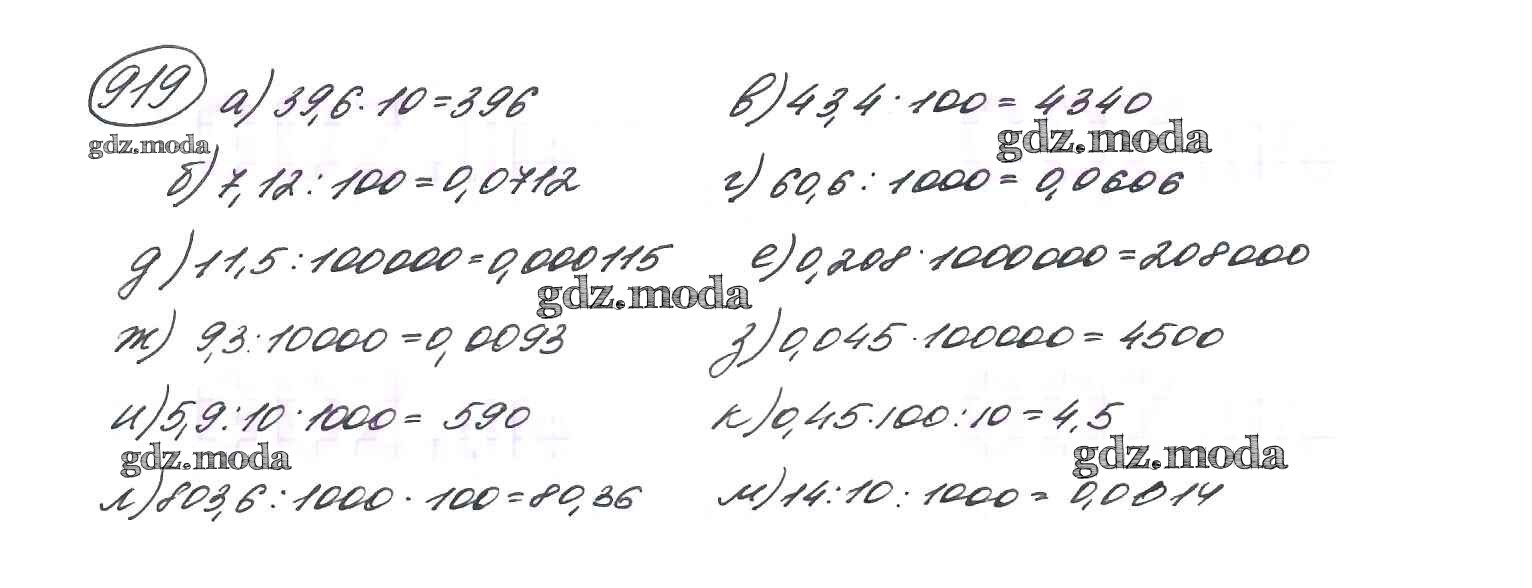 919 а) 39,6 · 10 = 396 в) 43,4 · 100 = 4340
gdz.moda gdz.moda
б) 7,12 : 100 = 0,0712 г) 60,6 : 1000 = 0,0606
д) 11,5 : 100000 = 0,000115 е) 0,208 · 1000000 = 208000
gdz.moda
ж) 9,3 : 10000 = 0,0093 з) 0,045 · 100000 = 4500
и) 5,9 : 10 · 1000 = 590 к) 0,45 · 100 : 10 = 4,5
gdz.moda gdz.moda
л) 803,6 : 1000 · 100 = 80,36 м) 14 : 10 : 1000 = 0,0014